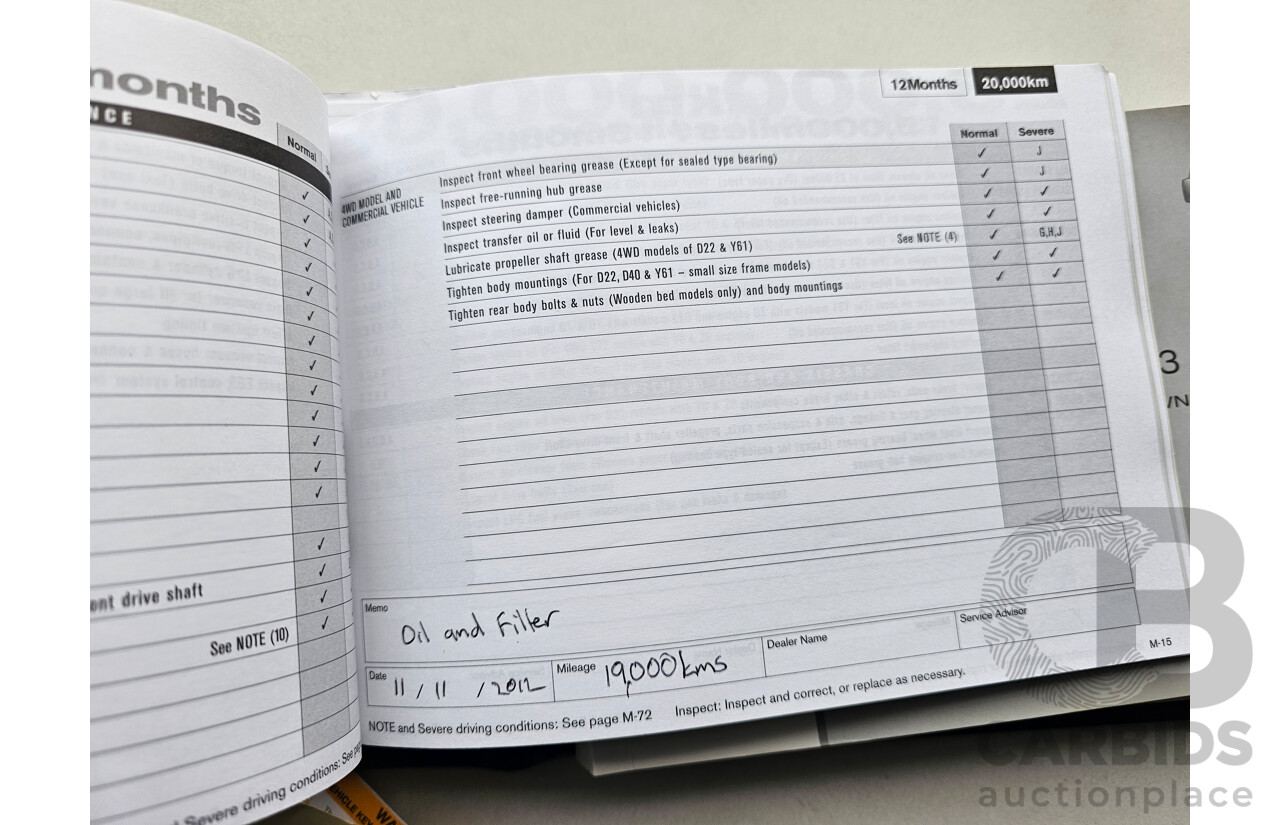 months
NCE
Normal
✓
✓
✓
✓
✓
✓
✓
✓
✓
✓
✓
✓
✓
✓
✓
ent drive shaft ✓
See NOTE (10) ✓
Severe driving conditions: See
12Months 20,000km
Normal Severe
4WD MODEL AND
COMMERCIAL VEHICLE
Inspect front wheel bearing grease (Except for sealed type bearing) ✓ J
Inspect free-running hub grease ✓ J
Inspect steering damper (Commercial vehicles) ✓ ✓
Inspect transfer oil or fluid (For level & leaks) ✓ ✓
Lubricate propeller shaft grease (4WD models of D22 & Y61) See NOTE (4) ✓ G,H,J
Tighten body mountings (For D22, D40 & Y61 – small size frame models) ✓ ✓
Tighten rear body bolts & nuts (Wooden bed models only) and body mountings ✓ ✓
Memo
Oil and Filter
Date 11 / 11 / 2012 Mileage 19,000kms Dealer Name Service Advisor
NOTE and Severe driving conditions: See page M-72 Inspect: Inspect and correct, or replace as necessary. M-15
3
WA
CARBIDS
auctionplace